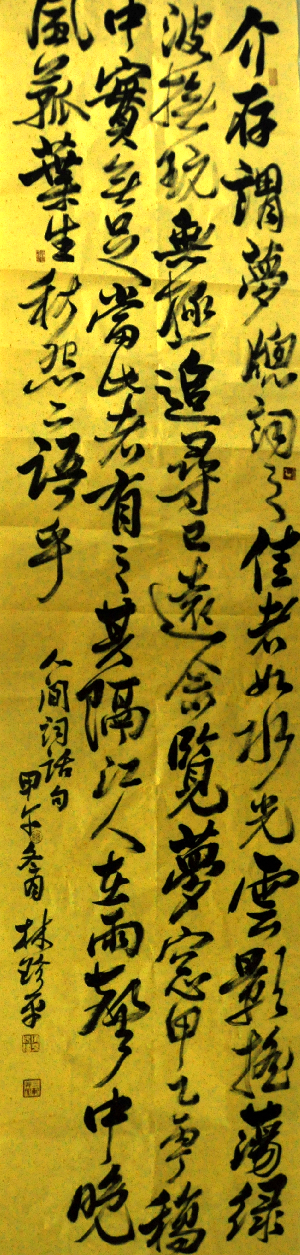 介存謂夢窗詞之佳者如水光雲影搖蕩綠
波撫玩無極追尋已遠余覽夢窗甲乙丙丁稿
中實無足當此者有之其隔江人在雨聲中晚
風菰葉生秋怨二語乎
人間詞話句
甲午冬月 林珍平